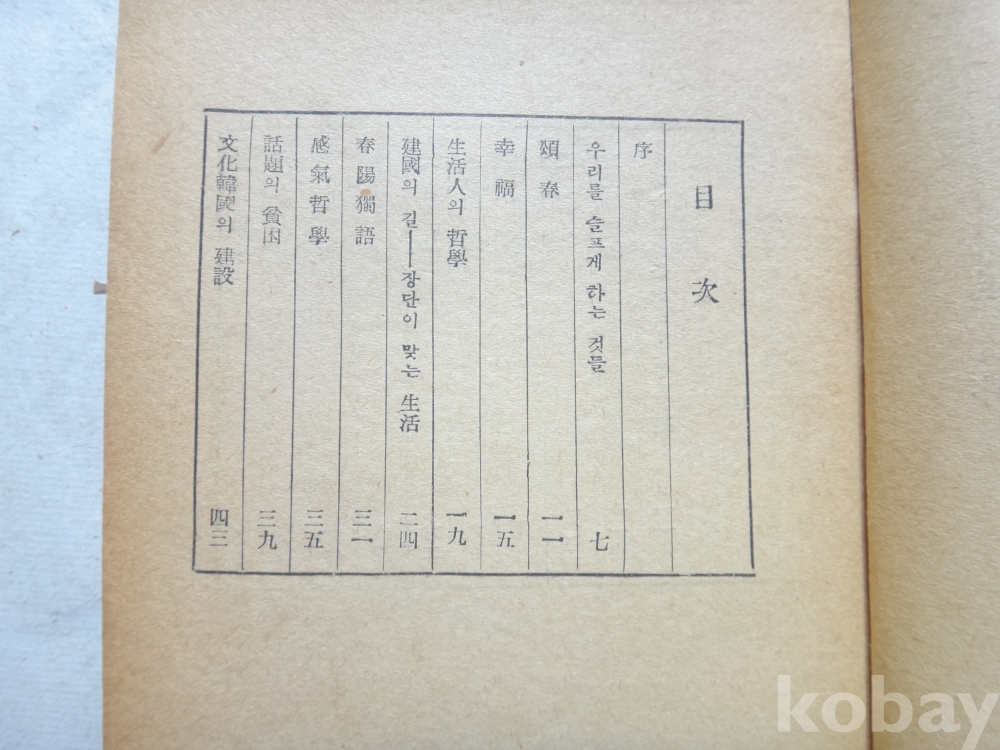 目次
序
우리를 슬프게 하는 것들 七
頌春 一一
幸福 一五
生活人의 哲學 一九
建國의 길——장단이 맞는 生活 二四
春陽獨語 三一
感氣哲學 三五
話題의 貧困 三九
文化韓國의 建設 四三
kobay